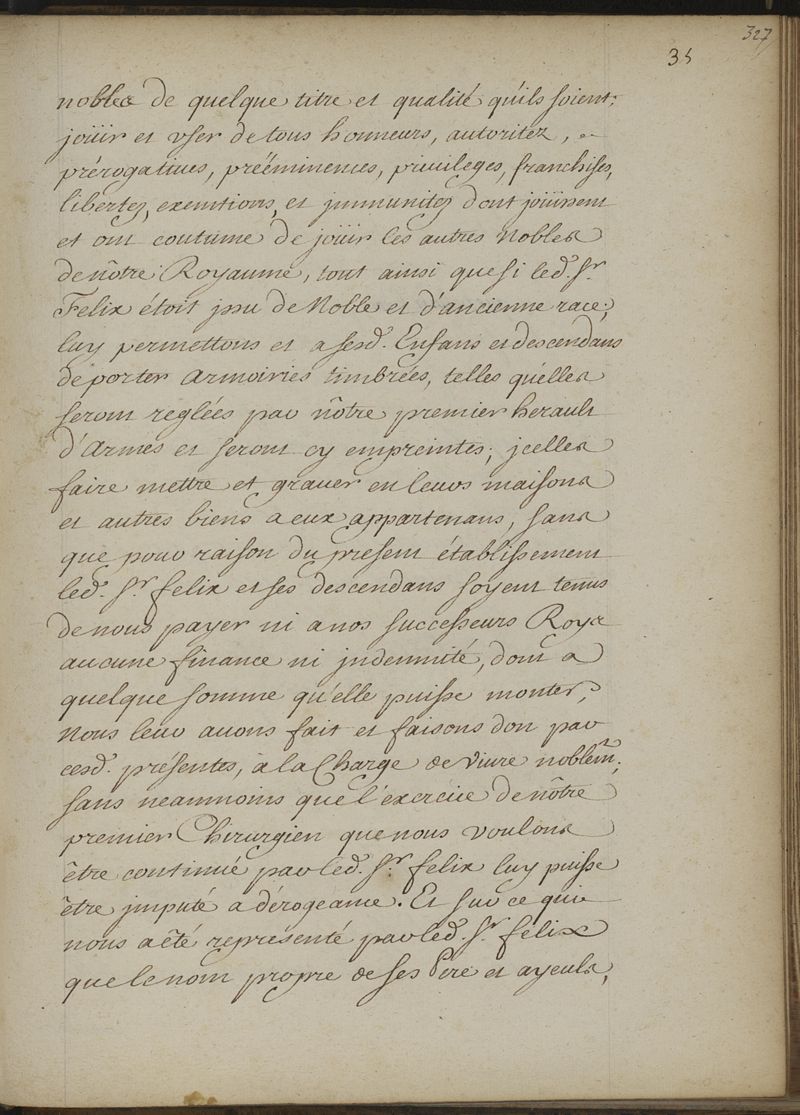 327
35
nobles de quelque titre et qualité qu'ils soient;
joüir et vser de tous honneurs, autoritez,
prérogatiues, prééminences, priuileges, franchises,
libertez, exemtions, et jmmunitez dont joüissent
et ont coutume de joüir les autres Nobles
de nôtre Royaume, tout ainsi que si led. Sr.
Felix étoit jssu de Noble et d'ancienne race;
luy permettons et a sesd. Enfans et descendans
de porter Armoiries timbrées, telles qu'elles
seront reglées par nôtre premier herault
d'Armes et seront cy empreintes; jcelles
faire mettre et grauer en leurs maisons
et autres biens a eux appartenans, sans
que pour raison du present établissement
led. Sr. felix et ses descendans soyent tenus
de nous payer ni a nos successeurs Roys
aucune finance ni jndemnité, dont a
quelque somme qu'elle puisse monter,
Nous leur auons fait et faisons don par
cesd. présentes, à la Charge de Viure noblemt.;
sans neanmoins que l'exercice de nôtre
premier Chirurgien que nous voulons
être continué par led. Sr. felix luy puisse
être jmputé a dérogeance. Et sur ce qui
nous a êté representé par led. Sr. felix
que le nom propre de ses Pere et ayeuls,